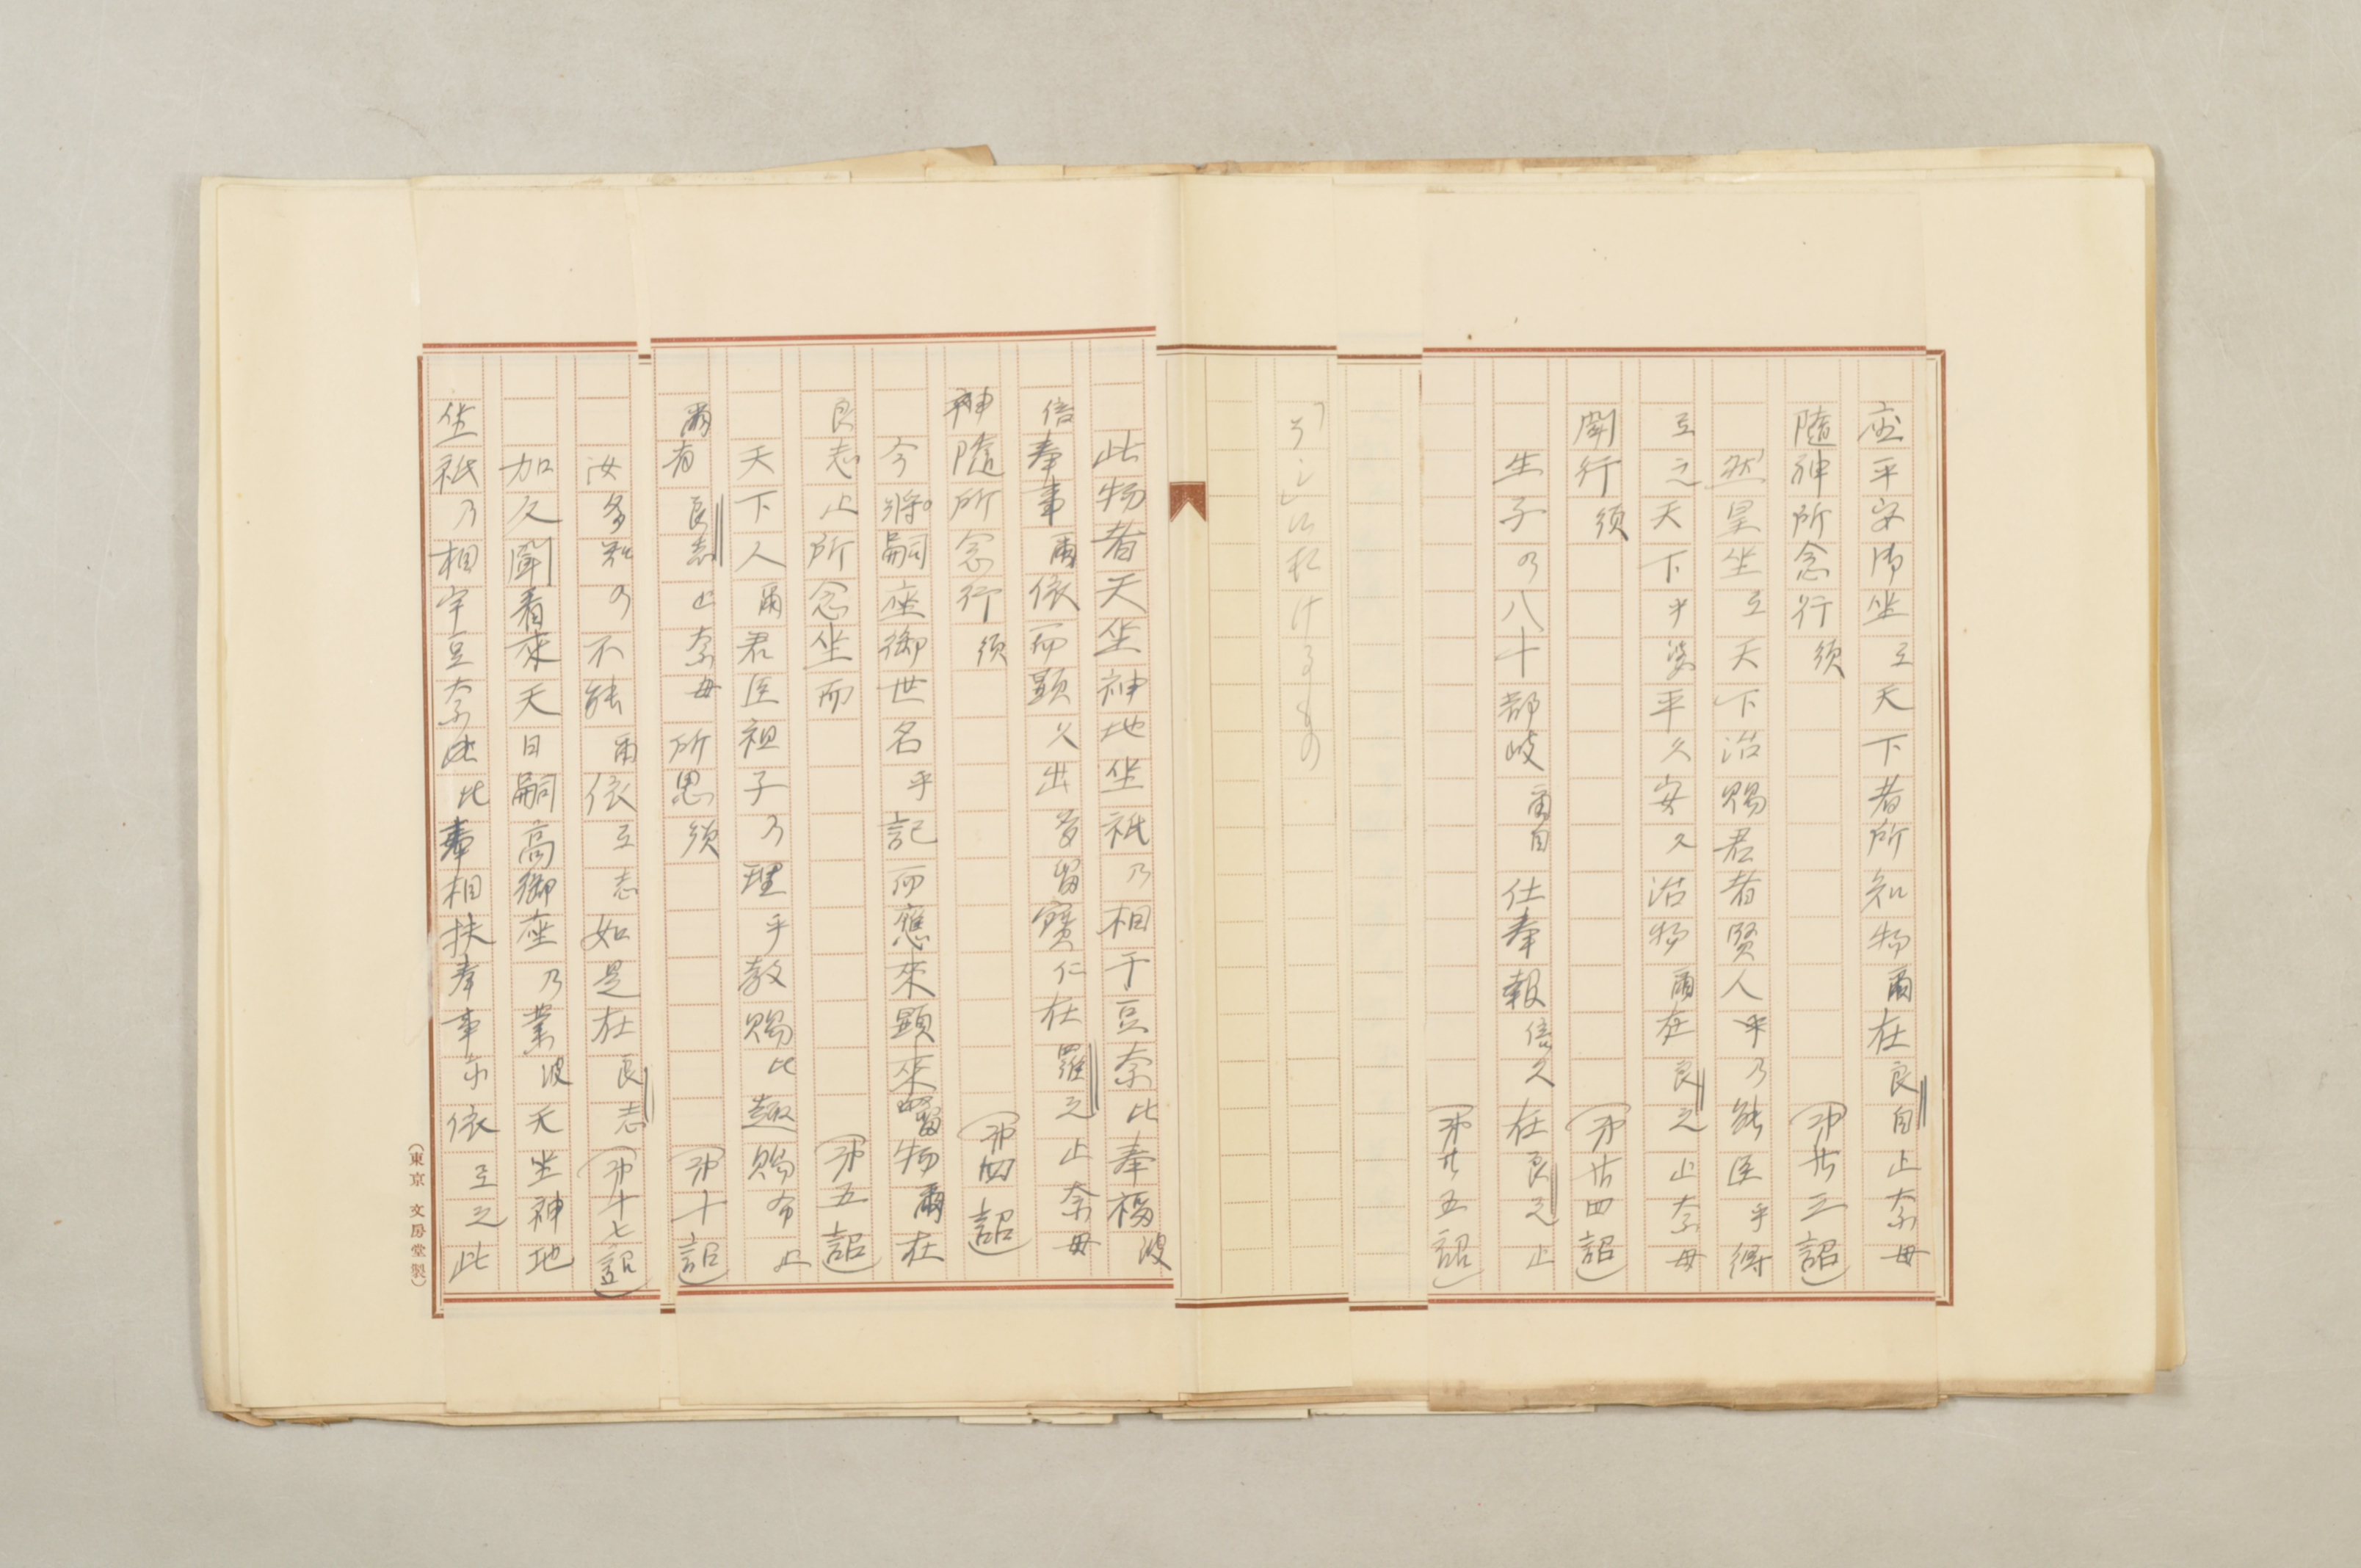 座平安御坐弖天下者所知物爾在良自止奈母
隨神所念行須（㐧廿三詔）
然皇坐弖天下治賜君者賢人乃能臣乎得
弖之天下乎婆平久安久治物爾在良之止奈母
聞行須（㐧廿四詔）
生子乃八十都岐爾自仕奉報倍久在良之止
（㐧廿五詔）
引に山松けるもの
此物者天坐神地坐祇乃相于豆奈比奉福波
倍奉事爾依而顕久出多留寶仁在羅之止奈母
神隨所念行須（㐧四詔）
今將嗣座御世名乎記而應來顕來留物爾在
良志止所念坐而（㐧五詔）
天下人爾君臣祖子乃理乎教賜比趣賜布止
爾有良志止奈母所思須（㐧十詔）
汝多知乃不能爾依弖志如是在良志（㐧十七詔）
加久聞看來天日嗣高御座乃業波天坐神地
坐祇乃相宇豆奈比奉相扶奉事尓依弖之此
（東京 文房堂製）